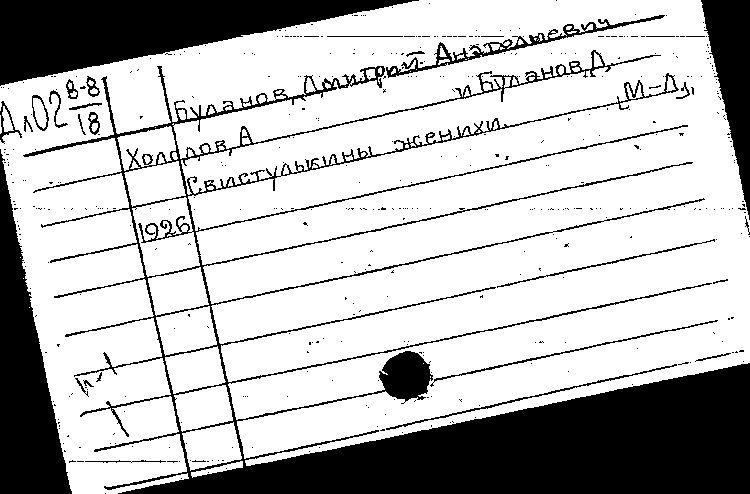 Дл02 8-8/18
Буланов, Дмитрий Анатольевич
Холодов, А и Буланов, Д.
Свистулькины женихи. [М.-Л],
1926